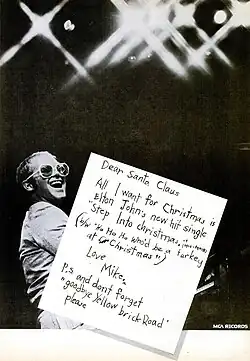 Dear Santa Claus
All I want for Christmas is
Elton John's new hit single
"Step Into Christmas,
Ho Ho Ho who'd be a turkey
at Christmas")
Love
Mike,
P.s and dont forget
'goodbye Yellow brick Road'
please
MCA RECORDS